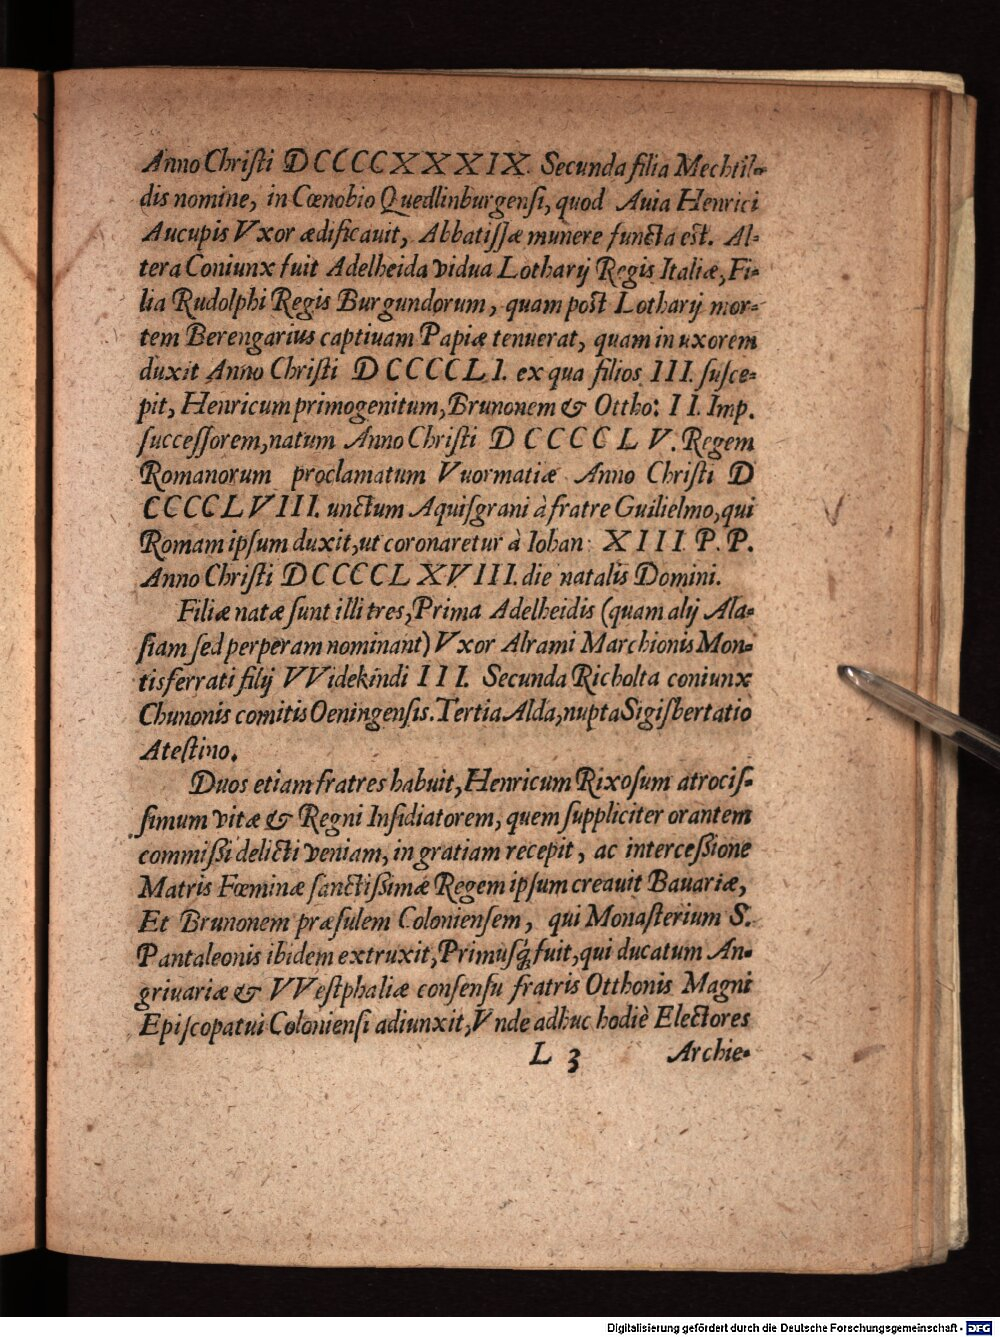 Anno Christi DCCCCXXXIX. Secunda filia Mechtil-
dis nomine, in Cœnobio Quedlinburgensi, quod Avia Henrici
Aucupis Vxor ædificauit, Abbatissæ munere functa est. Al-
tera Coniunx fuit Adelheida vidua Lotharij Regis Italiæ, Fi-
lia Rudolphi Regis Burgundorum, quam post Lotharij mor-
tem Berengarius captiuam Papiæ tenuerat, quam in uxorem
duxit Anno Christi DCCCCLI. ex qua filios III. susce-
pit, Henricum primogenitum, Brunonem & Ottho: II. Imp.
successorem, natum Anno Christi DCCCCLV. Regem
Romanorum proclamatum Vuormatiæ Anno Christi D
CCCCLVIII. unctum Aquisgrani à fratre Guilielmo, qui
Romam ipsum duxit, ut coronaretur à Iohan: XIII. P. P.
Anno Christi DCCCCLXVIII. die natalis Domini.
Filiæ natæ sunt illi tres, Prima Adelheidis (quam alij Ala-
siam sed perperam nominant) Vxor Alrami Marchionis Mon-
tisferrati filij VVidekindi III. Secunda Richolta coniunx
Chunonis comitis Oeningensis. Tertia Alda, nupta Sigisberto tatio
Atestino.
Duos etiam fratres habuit, Henricum Rixosum atrocis-
simum vitæ & Regni Insidiatorem, quem suppliciter orantem
commissi delicti veniam, in gratiam recepit, ac intercessione
Matris Fœminæ sanctissimæ Regem ipsum creauit Bauariæ,
Et Brunonem præsulem Coloniensem, qui Monasterium S.
Pantaleonis ibidem extruxit, Primusq́; fuit, qui ducatum An-
griuariæ & VVestphaliæ consensu fratris Otthonis Magni
Episcopatui Coloniensi adiunxit, Vnde adhuc hodiè Electores
L 3 Archie-
Digitalisierung gefördert durch die Deutsche Forschungsgemeinschaft - DFG